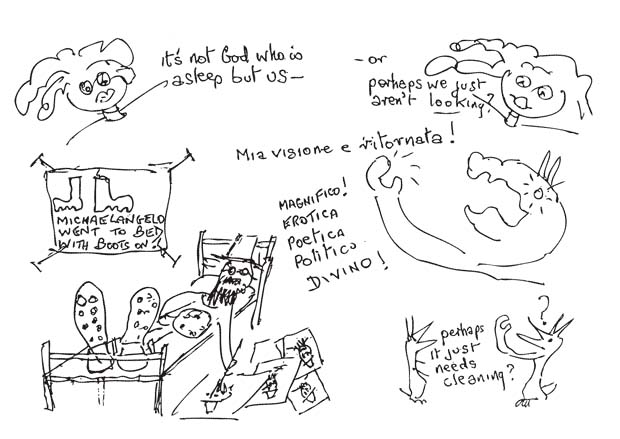 it's not God who is
asleep but us—
- or
perhaps we just
aren't looking?
Mia visione e ritornata!
MICHAELANGELO
WENT TO BED
WITH BOOTS ON!
MAGNIFICO!
EROTICA
POETICA
POLITICO
DIVINO!
?
perhaps
it just
needs
cleaning?